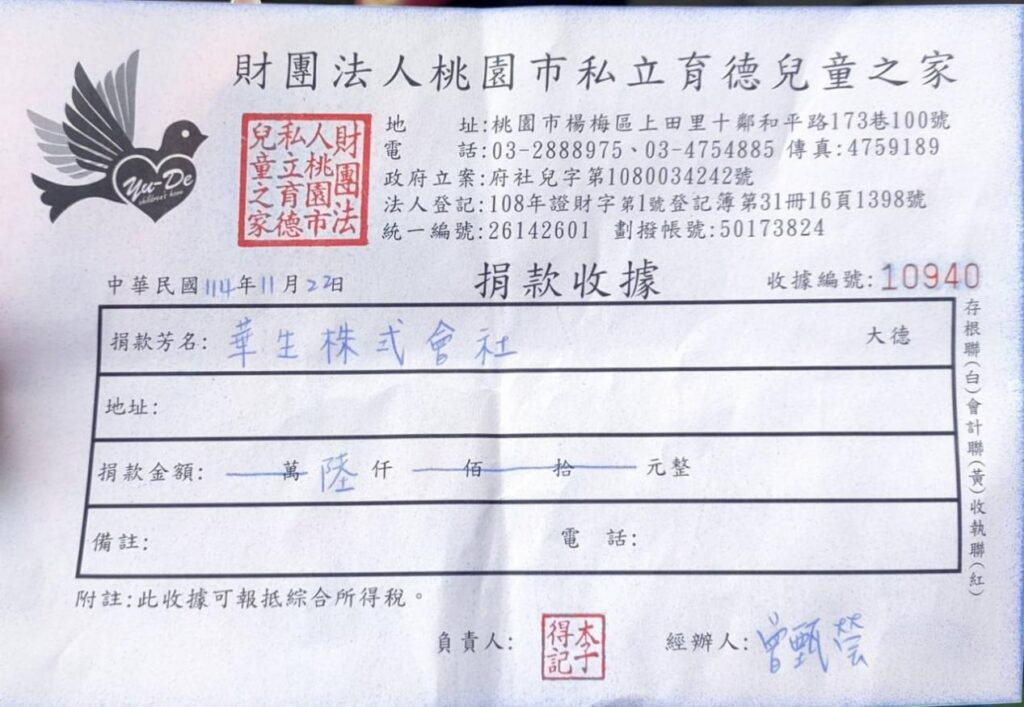 財團法人桃園市私立育德兒童之家
Yu-De
children's home
財團法
人桃園市
私立育德
兒童之家
地 址:桃園市楊梅區上田里十鄰和平路173巷100號
電 話:03-2888975、03-4754885 傳真:4759189
政府立案:府社兒字第1080034242號
法人登記:108年證財字第1號登記簿第31冊16頁1398號
統一編號:26142601 劃撥帳號:50173824
中華民國114年11月22日
捐款收據
收據編號:10940
捐款芳名: 華生株式會社 大德
地址:
捐款金額: 萬 陸仟 佰 拾 元整
備註: 電 話:
存根聯(白)會計聯(黃)收執聯(紅)
附註:此收據可報抵綜合所得稅。
負責人: 得記
經辦人: 曾甄